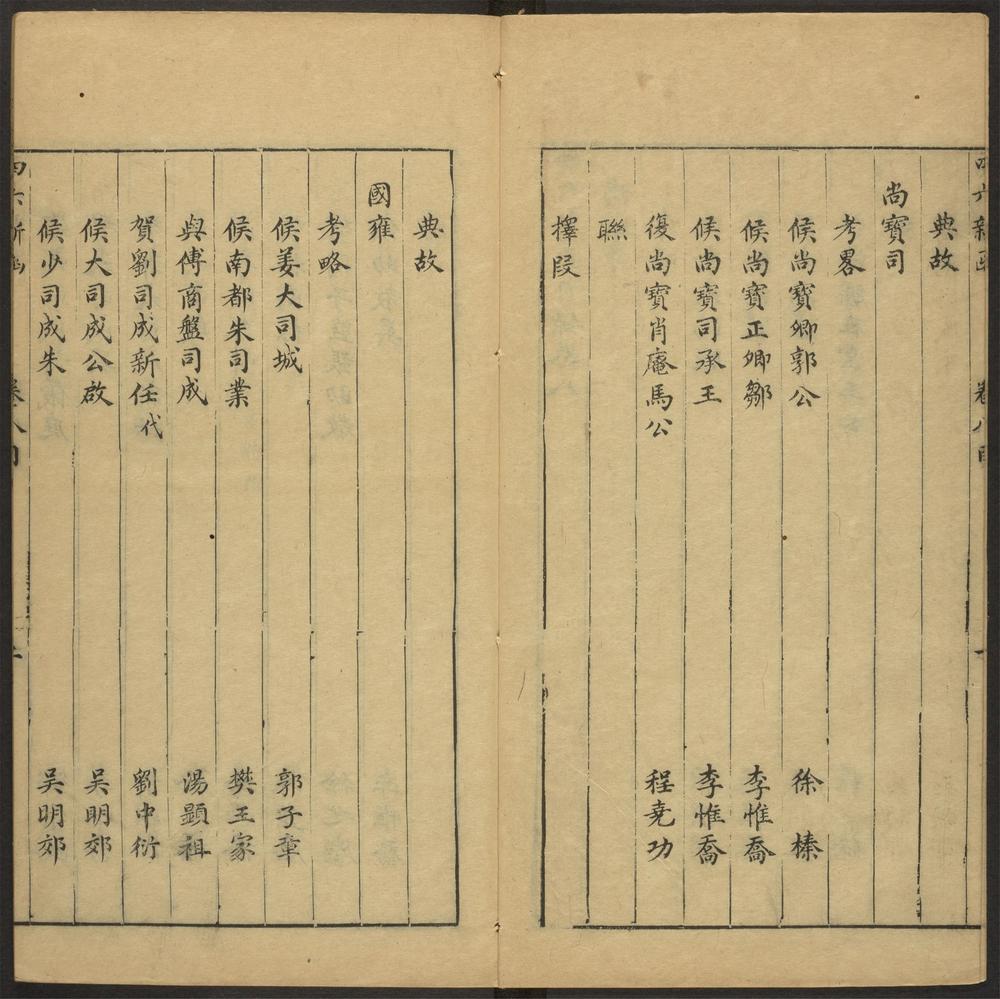 四六新函 卷八目 一
典故
尚寶司
考畧
候尚寶卿郭公 徐榛
候尚寶正卿鄒 李惟喬
候尚寶司承王 李惟喬
復尚寶肖庵馬公 程堯功
聯
擇段
典故
國雍
考略
候姜大司城 郭子章
候南都朱司業 樊王家
與傅商盤司成 湯顯祖
賀劉司成新任代 劉中衍
候大司成公啟 吳明郊
候少司成朱 吳明郊
四六新函 卷八目